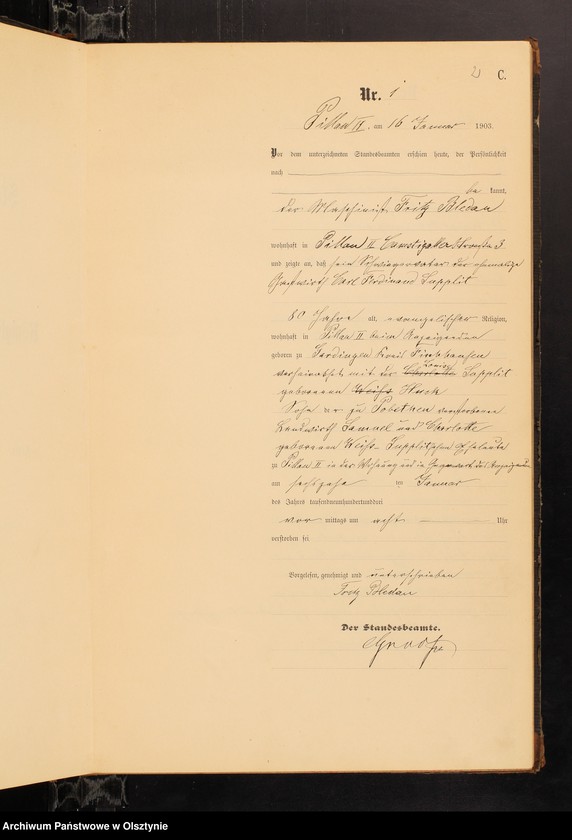 2 C.
Nr. 1
Pillau II. am 16 Januar 1903.
Vor dem unterzeichneten Standesbeamten erschien heute, der Persönlichkeit
nach
be kannt,
der Maschinist Fritz Bledau
wohnhaft in Pillau II 3
und zeigte an, daß sein Schwiegervater der ehemalige
Gastwirth Carl Ferdinand Supplit
80 Jahre alt, evangelischer Religion,
wohnhaft in Pillau II beim Anzeigenden
geboren zu Kreis Fischhausen
verheirathet mit der Supplit
geborenen Weihs Huck
Sohn der zu Pobethen verstorbenen
Landwirth Samuel und Charlotte
geborenen Weihs-Supplitschen Eheleute
zu Pillau II in der Wohnung und in Gegenwart des Anzeigenden
am sechszehn ten Januar
des Jahres tausendneunhundertunddrei
vor mittags um acht Uhr
verstorben sei.
Vorgelesen, genehmigt und unterschrieben
Fritz Bledau
Der Standesbeamte.
Archiwum Państwowe w Olsztynie